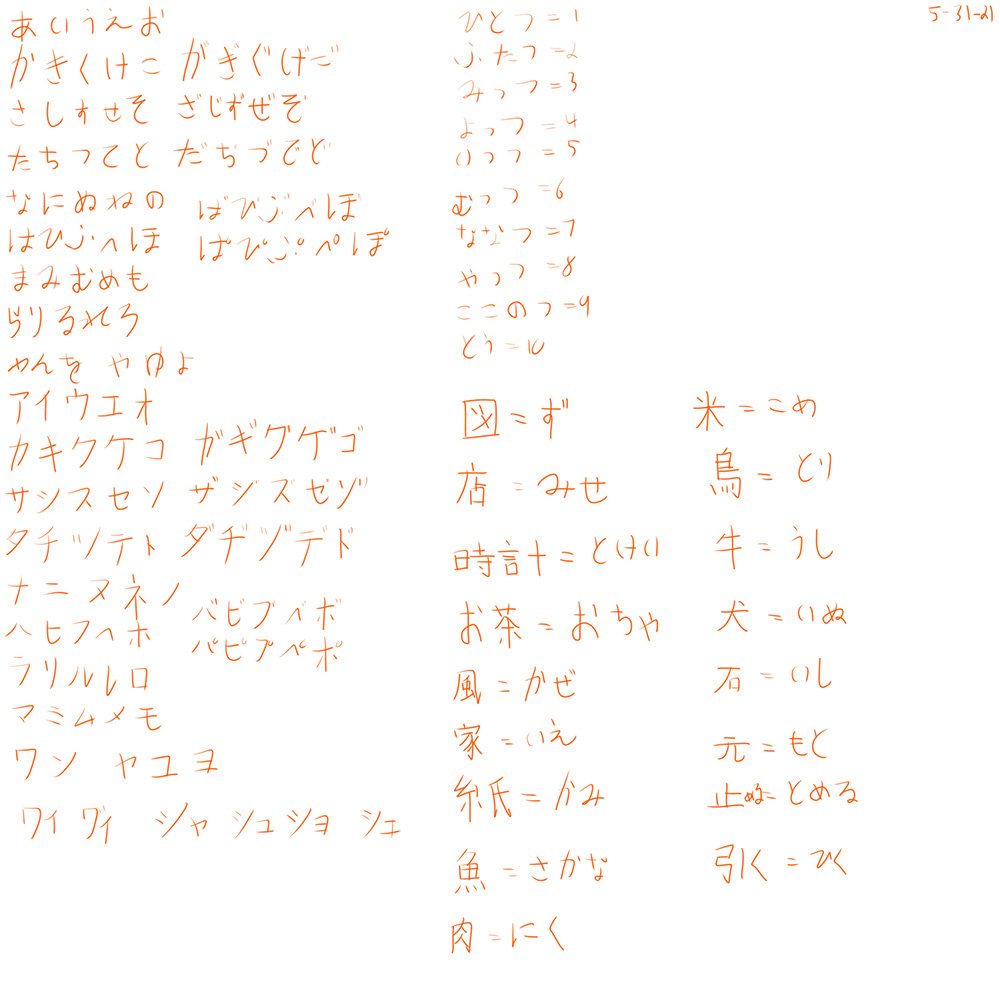 5-31-21
あいうえお
かきくけこ がぎぐげご
さしすせそ ざじずぜぞ
たちつてと だぢづでど
なにぬねの
ばびぶべぼ
はひふへほ
ぱぴぷぺぽ
まみむめも
らりるれろ
わんを やゆよ
アイウエオ
カキクケコ ガギグゲゴ
サシスセソ ザジズゼゾ
タチツテト ダヂヅデド
ナニヌネノ
バビブベボ
ハヒフヘホ
パピプペポ
ラリルレロ
マミムメモ
ワン ヤユヨ
ワィ ヴィ シャ シュ ショ シェ
ひとつ=1
ふたつ=2
みっつ=3
よっつ=4
いつつ=5
むっつ=6
ななつ=7
やっつ=8
ここのつ=9
とう=10
図=ず
店=みせ
時計=とけい
お茶=おちゃ
風=かぜ
家=いえ
紙=かみ
魚=さかな
肉=にく
米=こめ
鳥=とり
牛=うし
犬=いぬ
石=いし
元=もと
止める=とめる
引く=ひく